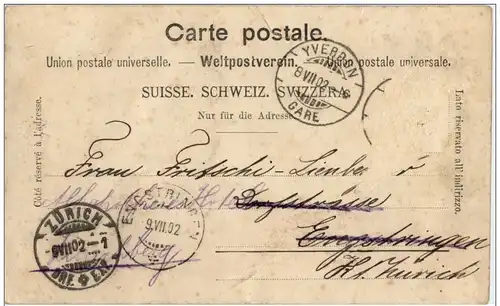 Carte postale.
Union postale universelle. — Weltpostverein. — Union postale universale.
SUISSE. SCHWEIZ. SVIZZERA.
Nur für die Adresse
Côté réservé à l'adresse.
Lato riservato all'indirizzo.
YVERDON
8 VII 02
GARE
Frau Fritschi-Lienber
Dorfstrasse
Engstringen
Kt. Zürich
ENGSTRINGEN
9.VII.02
ZÜRICH
9 VII 02 – 1
BRF. EXP.